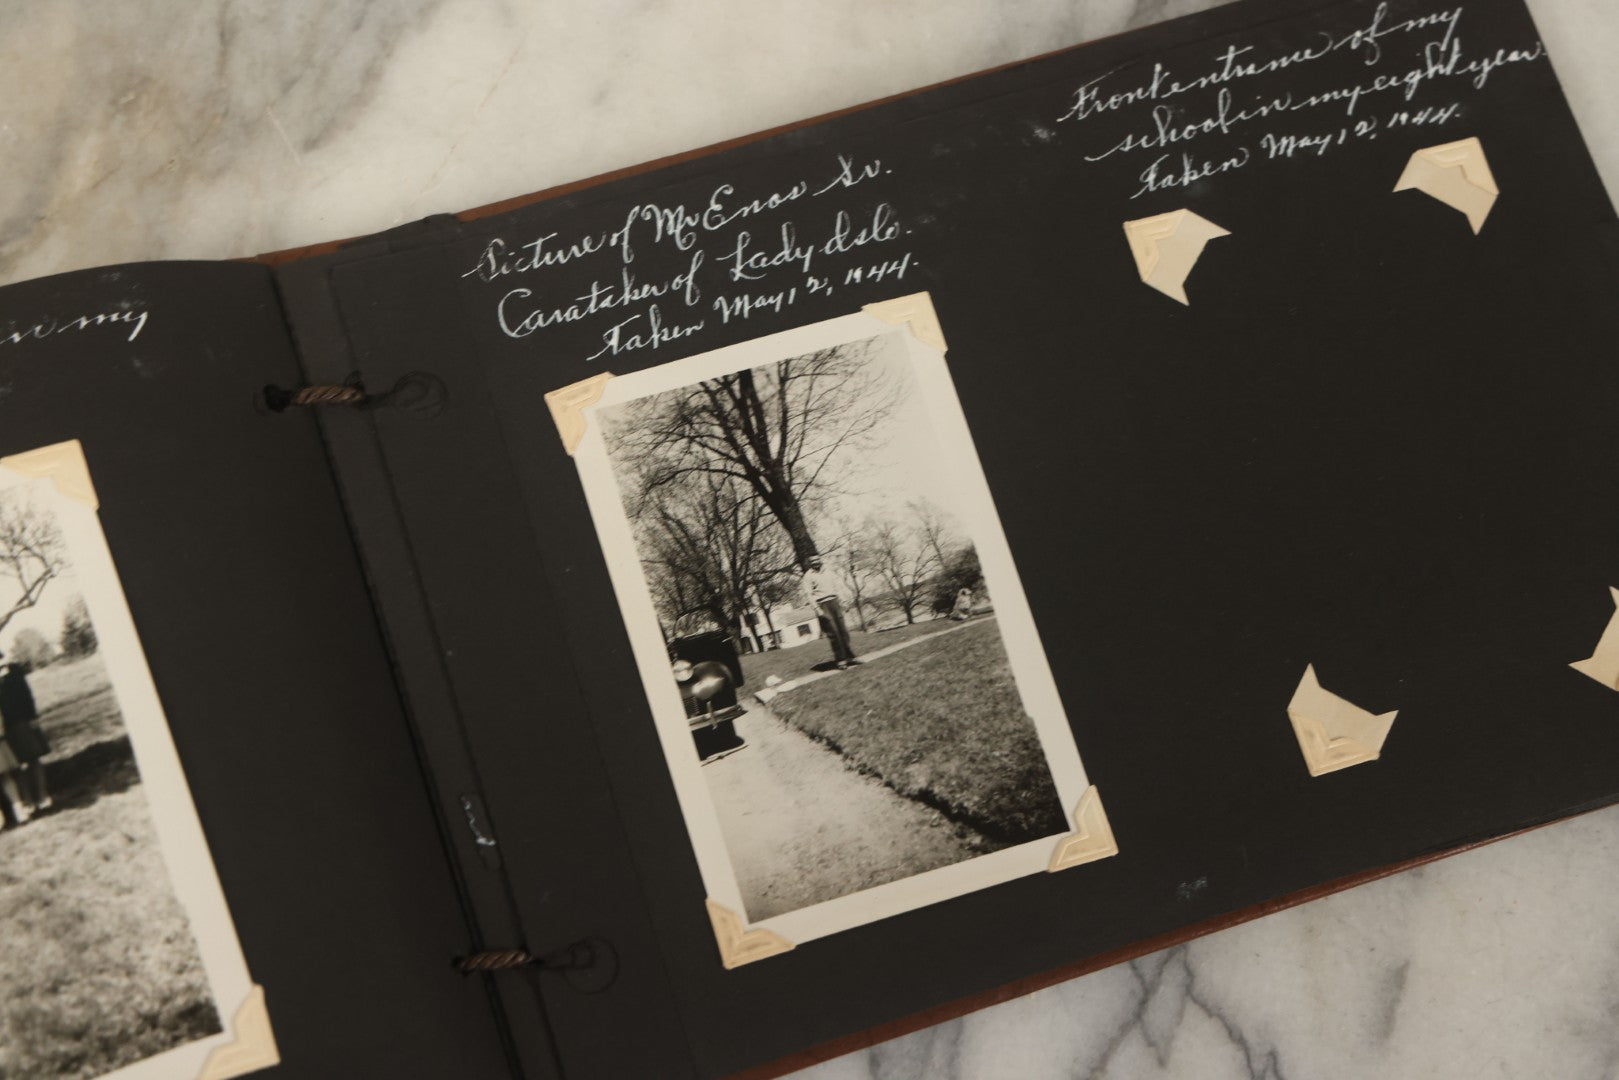 in my
Picture of Mr Enos Sr.
Carataker of Ladydsle.
Taken May 12, 1944.
Front entrance of my
school in my eight year.
Taken May 12, 1944.